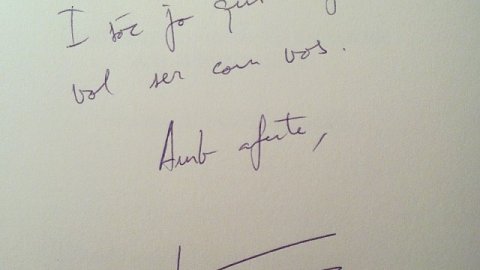 I sóc jo qui
vol ser com vos.
Amb afecte,